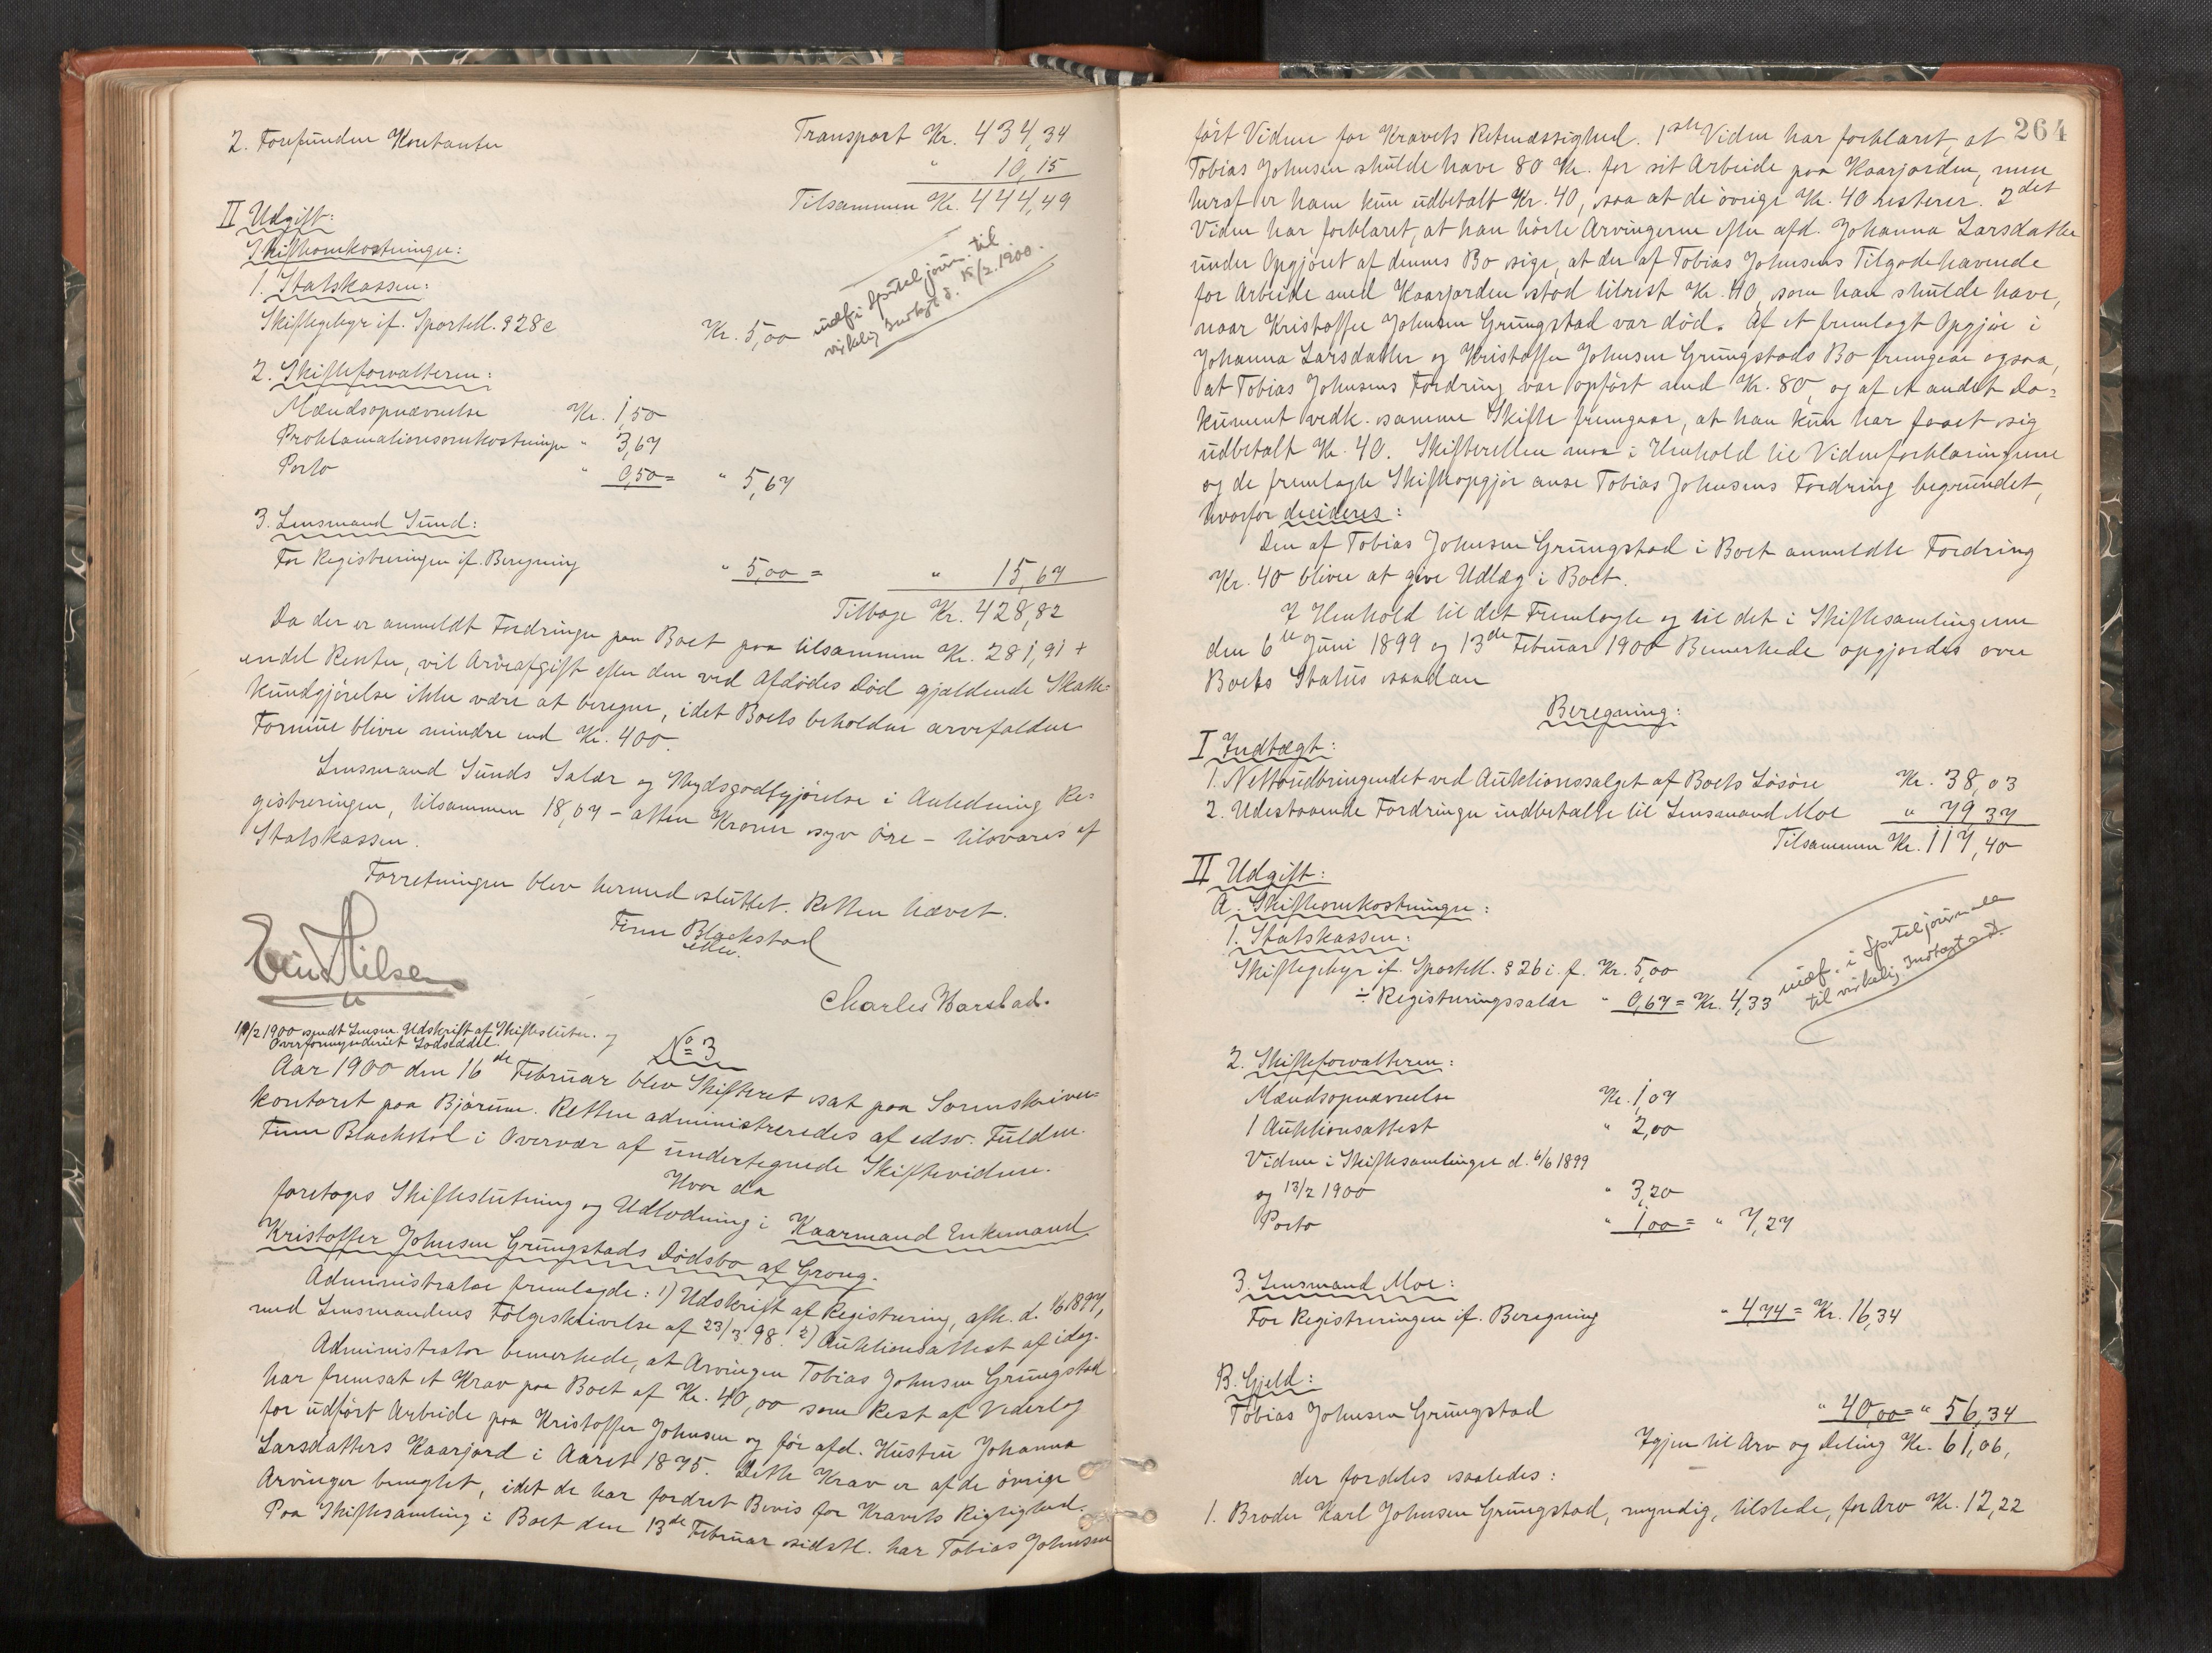 2. Forefunden Kontanter
Transport Kr. 434,34
" 10,15
Tilsammen Kr. 444,49
II Udgift:
Skifteomkostninger:
1. Statskassen:
Skiftegebyr if. Sportell. § 28 c Kr. 5,00
udf. i Sporteljourn. til
virkelig Indtægt d. 15/2.1900.
2. Skifteforvalteren:
Mændsopnævnelse Kr. 1,50
Proklamationsomkostninger " 3,67
Porto " 0,50 = " 5,67
3. Lensmand Sund:
For Registreringen if. Beregning " 5,00 = " 15,67
Tilbage Kr. 428,82
Da der er anmeldt Fordringer paa Boet paa tilsammen Kr. 281,91 +
endel Renter, vil Arveafgift efter den ved Afdødes Død gjældende Skatte-
kundgjørelse ikke være at beregne, idet Boets beholdne arvefaldne
Formue bliver mindre end Kr. 400.
Lensmand Sunds Salær og Skydsgodtgjørelse i Anledning Re-
gistreringen, tilsammen 18,07 - atten Kroner syv Øre - tilsvares af
Statskassen.
Forretningen blev hermed sluttet. Retten hævet.
Finn Blackstad
edsv.
Charles Harstad.
1/2 1900 sendt Lensm. Udskrift af Skifteslutn. og
Overformynderiet Lodseddel.
No 3
Aar 1900 den 16de Februar blev Skifteret sat paa Sorenskriver-
kontoret paa Bjørum. Retten administreredes af edsv. Fuldm.
Finn Blackstad i Overvær af undertegnede Skiftevidner.
Hvor da
foretoges Skifteslutning og Udlodning i Kaarmand Enkemand
Kristoffer Johnsen Grungstads Dødsbo af Grong.
Administrator fremlagde: 1) Udskrift af Registrering, afh. d. 1/6 1897,
med Lensmandens Følgeskrivelse af 23/3 98. 2) Auktionsattest af idag.
Administrator bemerkede, at Arvingen Tobias Johnsen Grungstad
har fremsat et Krav paa Boet af Kr. 40,00 som Rest af Vederlag
for udført Arbeide paa Kristoffer Johnsen og før afd. Hustru Johanna
Larsdatters Kaarjord i Aaret 1895. Dette Krav er af de øvrige
Arvinger benegtet, idet de har fordret Bevis for Kravets Rigtighed.
Paa Skiftesamling i Boet den 13de Februar sidstl. har Tobias Johnsen
264
ført Vidner for Kravets Retmæssighed. 1ste Vidne har forklaret, at
Tobias Johnsen skulde have 80 Kr. for sit Arbeide paa Kaarjorden, men
heraf er ham kun udbetalt Kr. 40, saa at de øvrige Kr. 40 resterer. 2det
Vidne har forklaret, at han hørte Arvingerne efter afd. Johanna Larsdatter
under Opgjøret af dennes Bo sige, at der af Tobias Johnsens Tilgodehavende
for Arbeide med Kaarjorden stod tilrest Kr. 40, som han skulde have,
naar Kristoffer Johnsen Grungstad var død. Af et fremlagt Opgjør i
Johanna Larsdatter og Kristoffer Johnsen Grungstads Bo fremgaar ogsaa,
at Tobias Johnsens Fordring var opført med Kr. 80, og af et andet Do-
kument vedk. samme Skifte fremgaar, at han kun har faaet sig
udbetalt Kr. 40. Skifteretten maa i Henhold til Vidneforklaringerne
og de fremlagte Skifteopgjør anse Tobias Johnsens Fordring begrundet,
hvorfor decideres:
Den af Tobias Johnsen Grungstad i Boet anmeldte Fordring
Kr. 40 bliver at give Udlæg i Boet.
I Henhold til det Fremlagte og til det i Skiftesamlingerne
den 6te Juni 1899 og 13de Februar 1900 Bemerkede opgjordes over
Boets Status saadan
Beregning:
I Indtægt:
1. Nettoudbringendet ved Auktionssalget af Boets Løsøre Kr. 38,03
2. Udestaaende Fordringer indbetalte til Lensmand Moe " 79,37
Tilsammen Kr. 117,40
II Udgift:
A. Skifteomkostninger:
1. Statskassen:
Skiftegebyr if. Sportell. § 26 i. f. Kr. 5,00
÷ Registreringssalær " 0,67 = Kr. 4,33
udf. i Sporteljournalen
til virkelig Indtægt s.D.
2. Skifteforvalteren:
Mændsopnævnelse Kr. 1,07
1 Auktionsattest " 2,00
Vidner i Skiftesamlinger d. 6/6 1899
og 13/2 1900 " 3,20
Porto " 1,00 = " 7,27
3. Lensmand Moe:
For Registreringen if. Beregning " 4,74 = Kr. 16,34
B. Gjeld:
Tobias Johnsen Grungstad " 40,00 = " 56,34
Igjen til Arv og Deling Kr. 61,06,
der fordeles saaledes:
1. Broder Karl Johnsen Grungstad, myndig, tilstede, for Arv Kr. 12,22